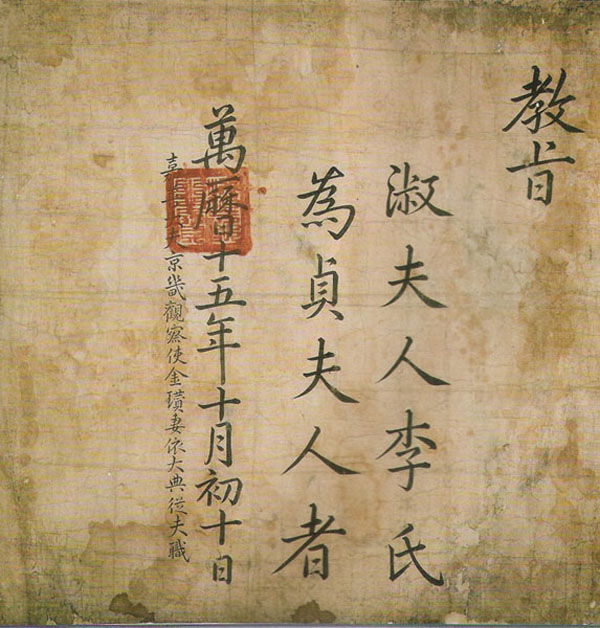 教旨
淑夫人李氏
為貞夫人者
萬曆十五年十月初十日
嘉善大夫京畿觀察使金瓚妻依大典從夫職